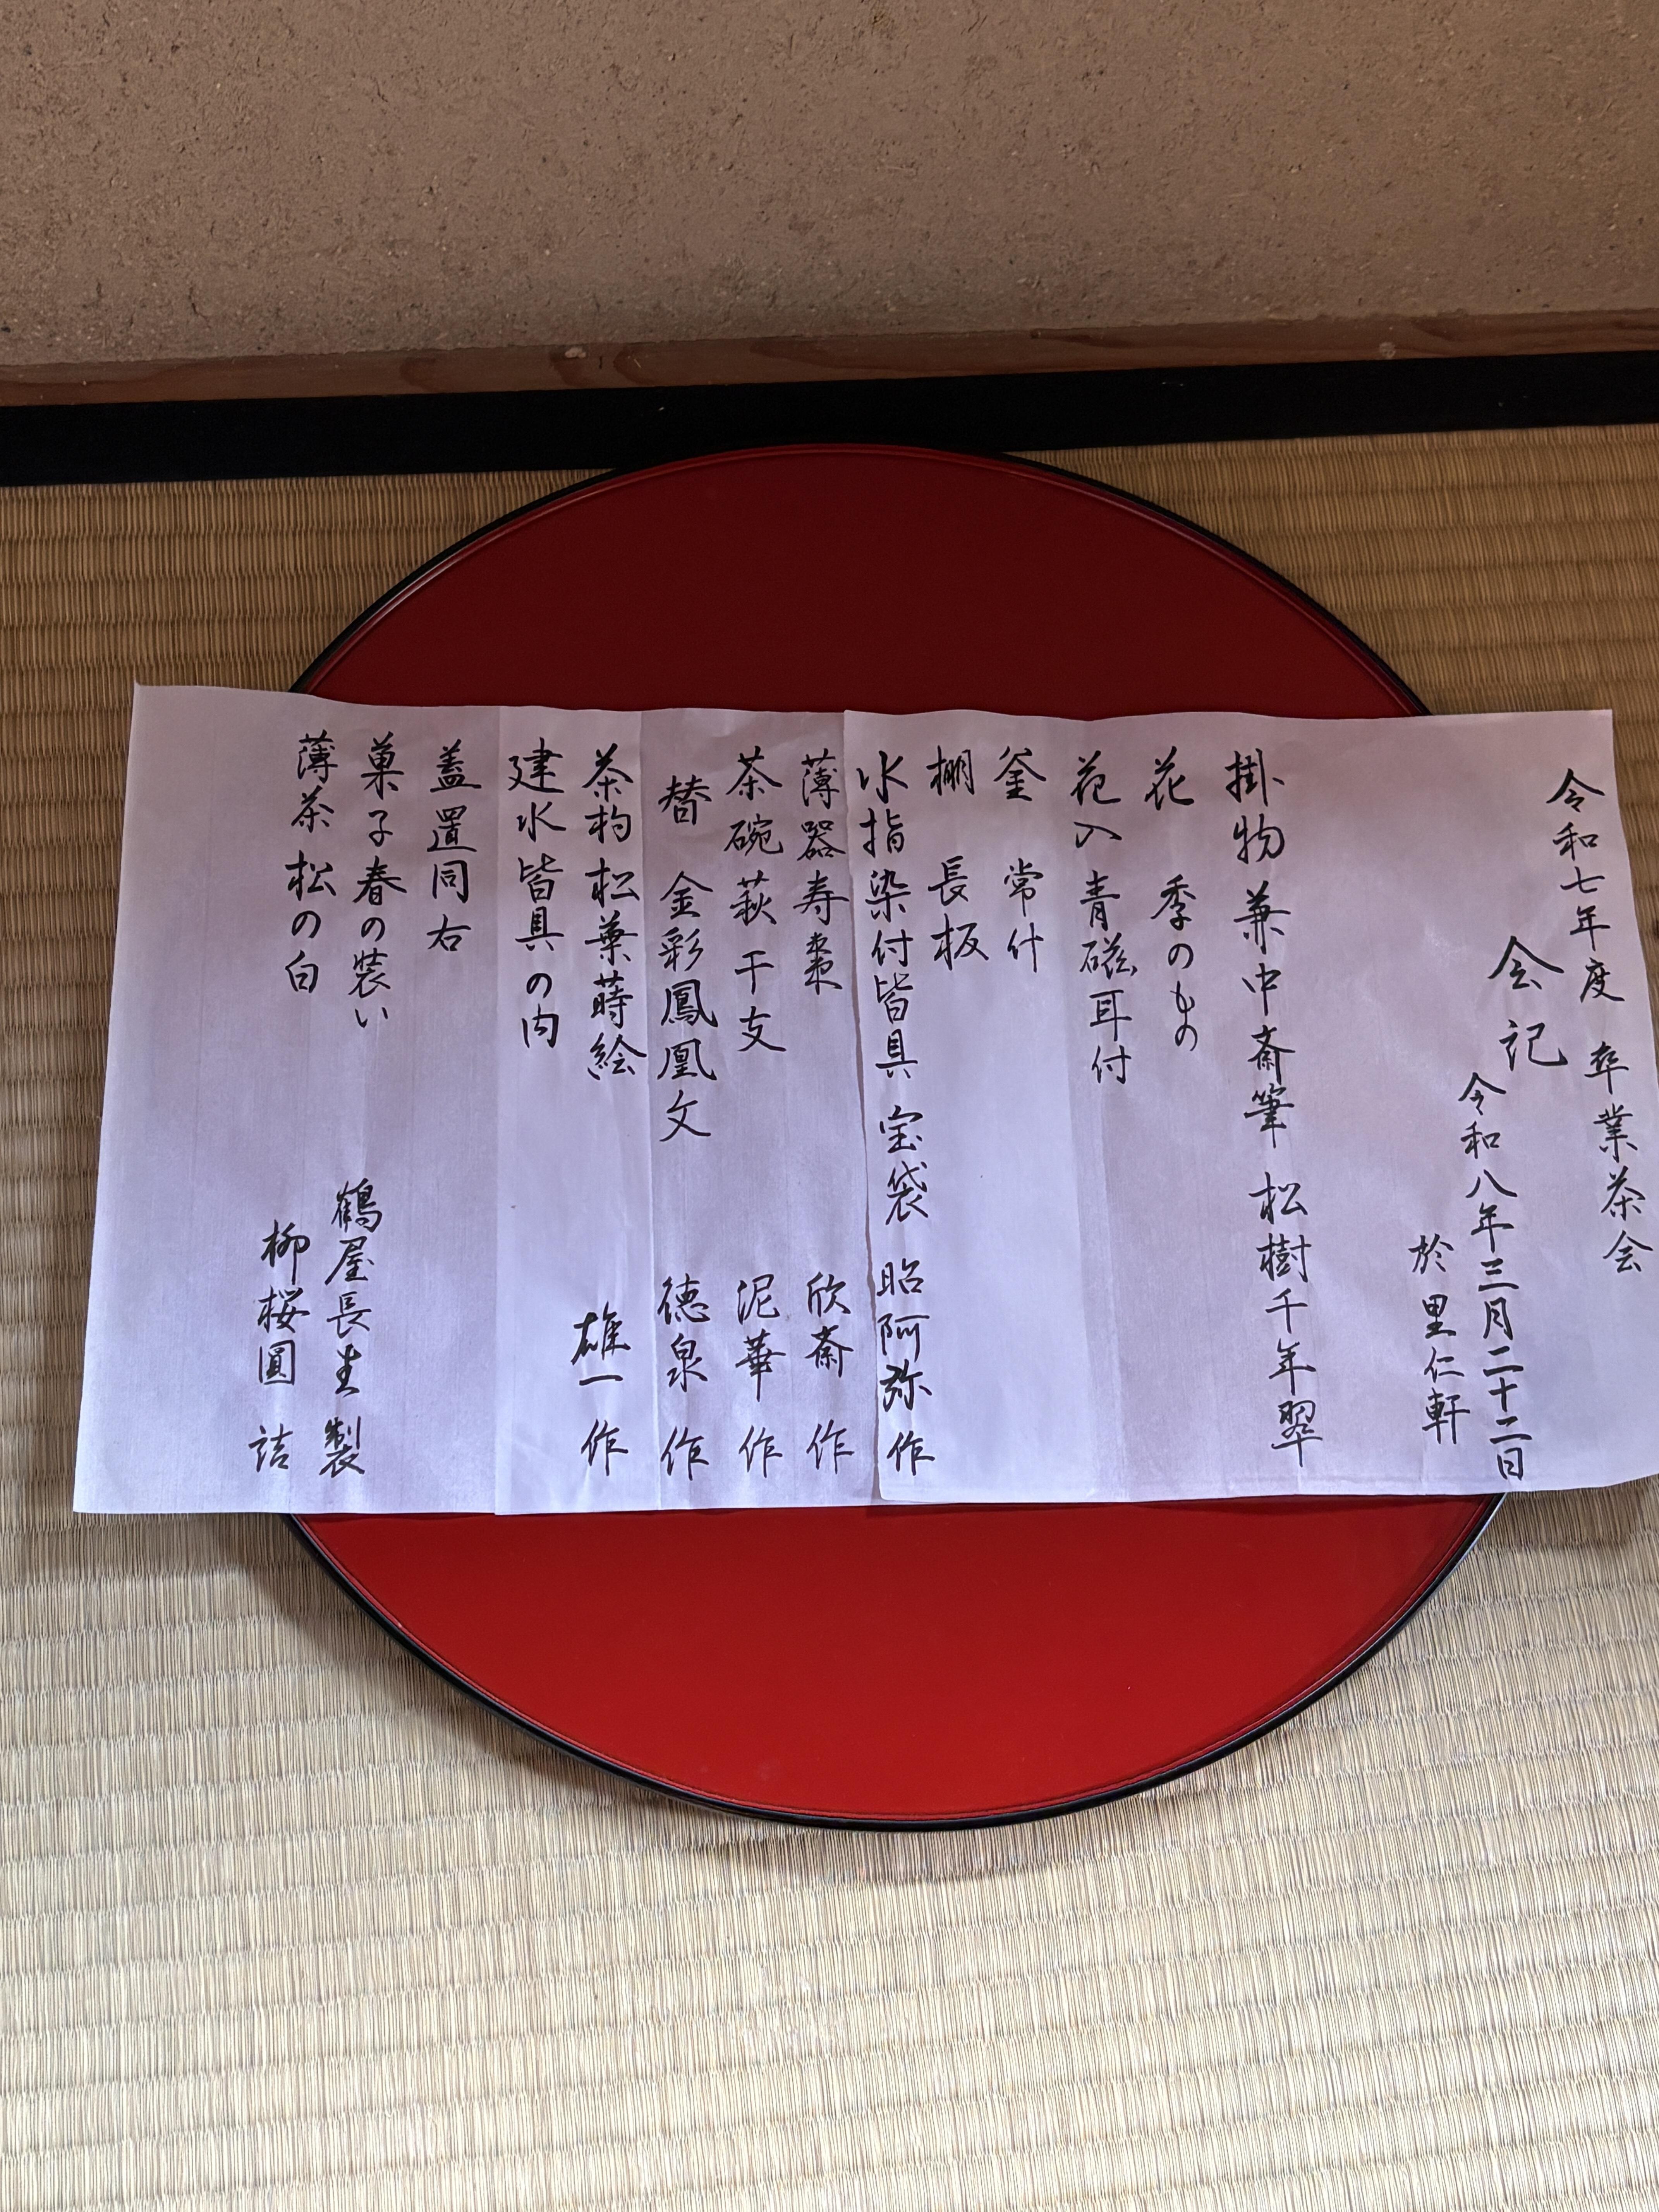 令和七年度 卒業茶会
会記
令和八年三月二十二日
於 里仁軒
掛物 兼中斎筆 松樹千年翠
花 季のもの
花入 青磁耳付
釜 常什
棚 長板
水指 染付皆具 宝袋 昭阿弥 作
薄器 寿棗 欣斎 作
茶碗 萩 干支 泥華 作
替 金彩鳳凰文 徳泉 作
茶杓 松葉蒔絵 雄一 作
建水 皆具の内
蓋置 同右
菓子 春の装い 鶴屋長生 製
薄茶 松の白 柳桜圓 詰